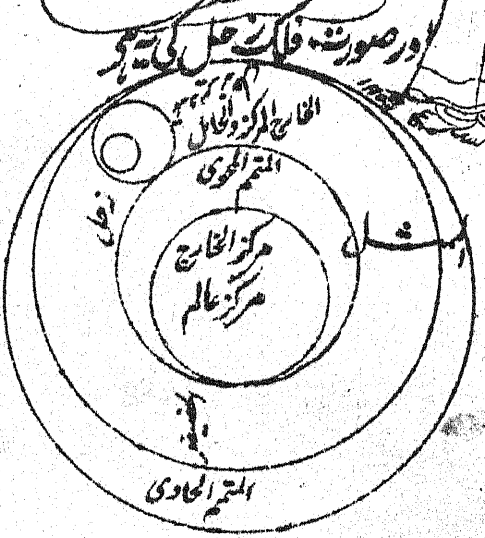 اور صورت فلک زحل کی یہ ہے
الخارج المرکز والحامل
المتمم المحوی
زحل
الممثل
مرکز الخارج
مرکز عالم
المتمم الحاوی